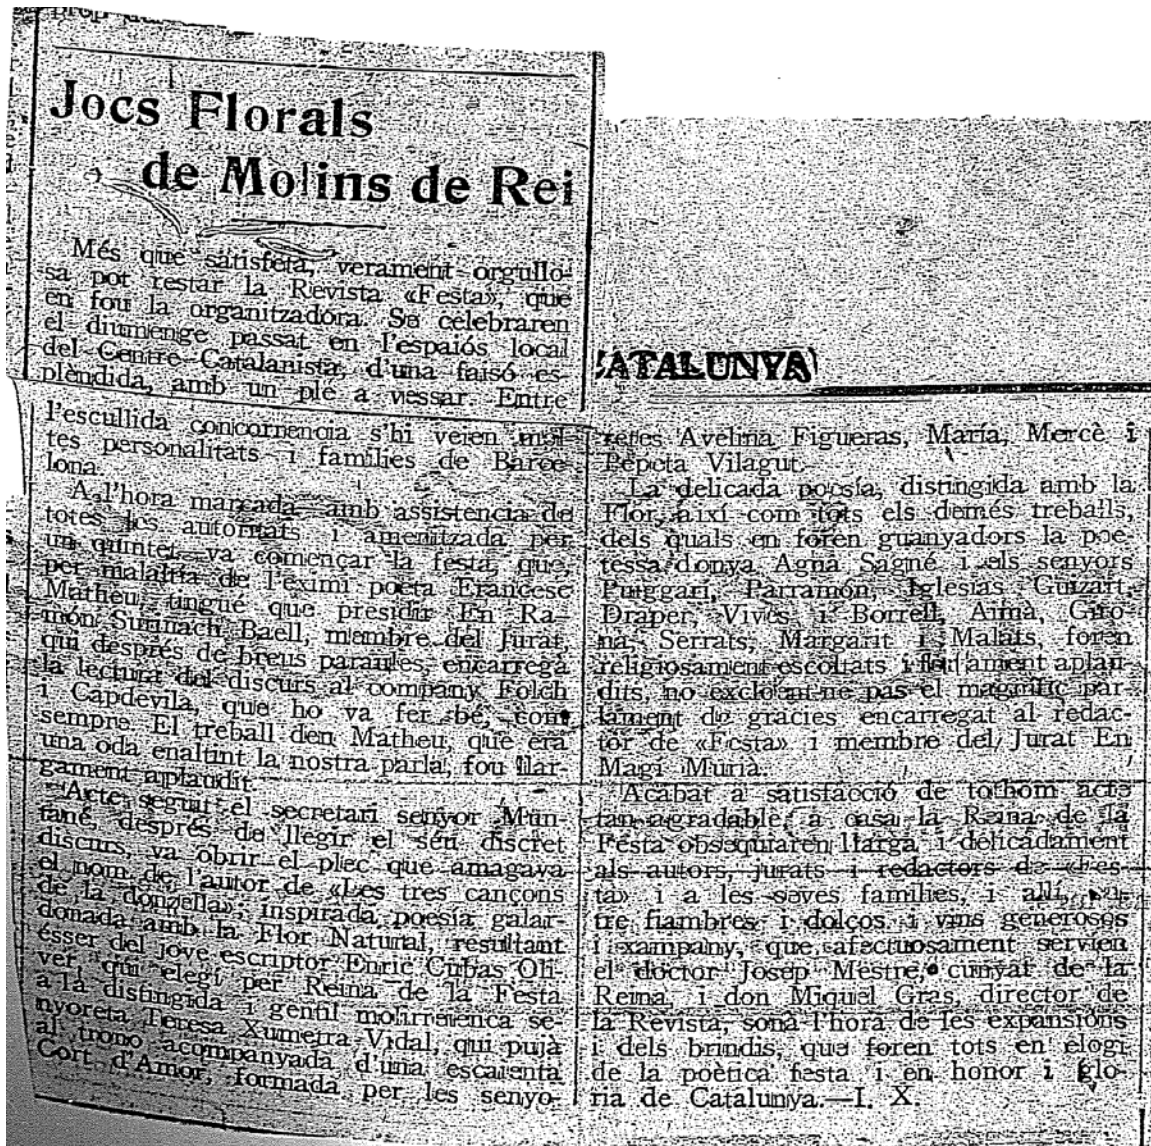 Jocs Florals
de Molins de Rei
Més que satisfeta, verament orgullo-
sa pot restar la Revista «Festa», que
en fou la organitzadora. Se celebraren
el diumenge passat en l'espaiós local
del Centre Catalanista, d'una faisó es-
plèndida, amb un ple a vessar. Entre
l'escullida concorrencia s'hi veien mol-
tes personalitats i families de Barce-
lona.
A l'hora marcada, amb assistencia de
totes les autoritats i amenitzada per
un quintet, va començar la festa, que,
per malaltía de l'eximi poeta Francesc
Matheu, tingué que presidir En Ra-
món Suriñach Baell, membre del Jurat,
qui després de breus paraules, encarregà
la lectura del discurs al company Folch
i Capdevila, que ho va fer bé, com
sempre. El treball den Matheu, que era
una oda enaltint la nostra parla, fou llar-
gament aplaudit.
Acte seguit el secretari senyor Mun-
tané, després de llegir el séu discret
discurs, va obrir el plec que amagava
el nom de l'autor de «Les tres cançons
de la donzella», inspirada poesía galar-
donada amb la Flor Natural, resultant
ésser del jove escriptor Enric Cubas Oli-
ver, qui elegí per Reina de la Festa
a la distingida i gentil molinsreienca se-
nyoreta Teresa Xumetra Vidal, qui pujà
al trono acompanyada d'una escaienta
Cort d'Amor, formada per les senyo-
CATALUNYA
retes Avelina Figueras, María, Mercè i
Pepeta Vilagut.
La delicada poesía, distingida amb la
Flor, aixi com tots els demés treballs,
dels quals en foren guanyadors la poe-
tessa donya Agna Sagné i els senyors
Puiggarí, Parramón, Iglesias Guizart,
Draper, Vives i Borrell, Aimà, Giro-
na, Serrats, Margarit i Malats, foren
religiosament escoltats i aplau-
dits, no excloent-ne pas el magnífic par-
lament de gracies encarregat al redac-
tor de «Festa» i membre del Jurat En
Magí Murià.
Acabat a satisfacció de tothom acte
tan agradable, a casa la Reina de la
Festa obsequiaren llarga i delicadament
als autors, jurats i redactors de «Fes-
ta» i a les seves families, i allí, en-
tre fiambres i dolços i vins generosos
i xampany, que afectuosament servien
el doctor Josep Mestre, cunyat de la
Reina, i don Miquel Gras, director de
la Revista, sonà l'hora de les expansions
i dels brindis, que foren tots en elogi
de la poètica festa i en honor i glo-
ria de Catalunya.—I. X.